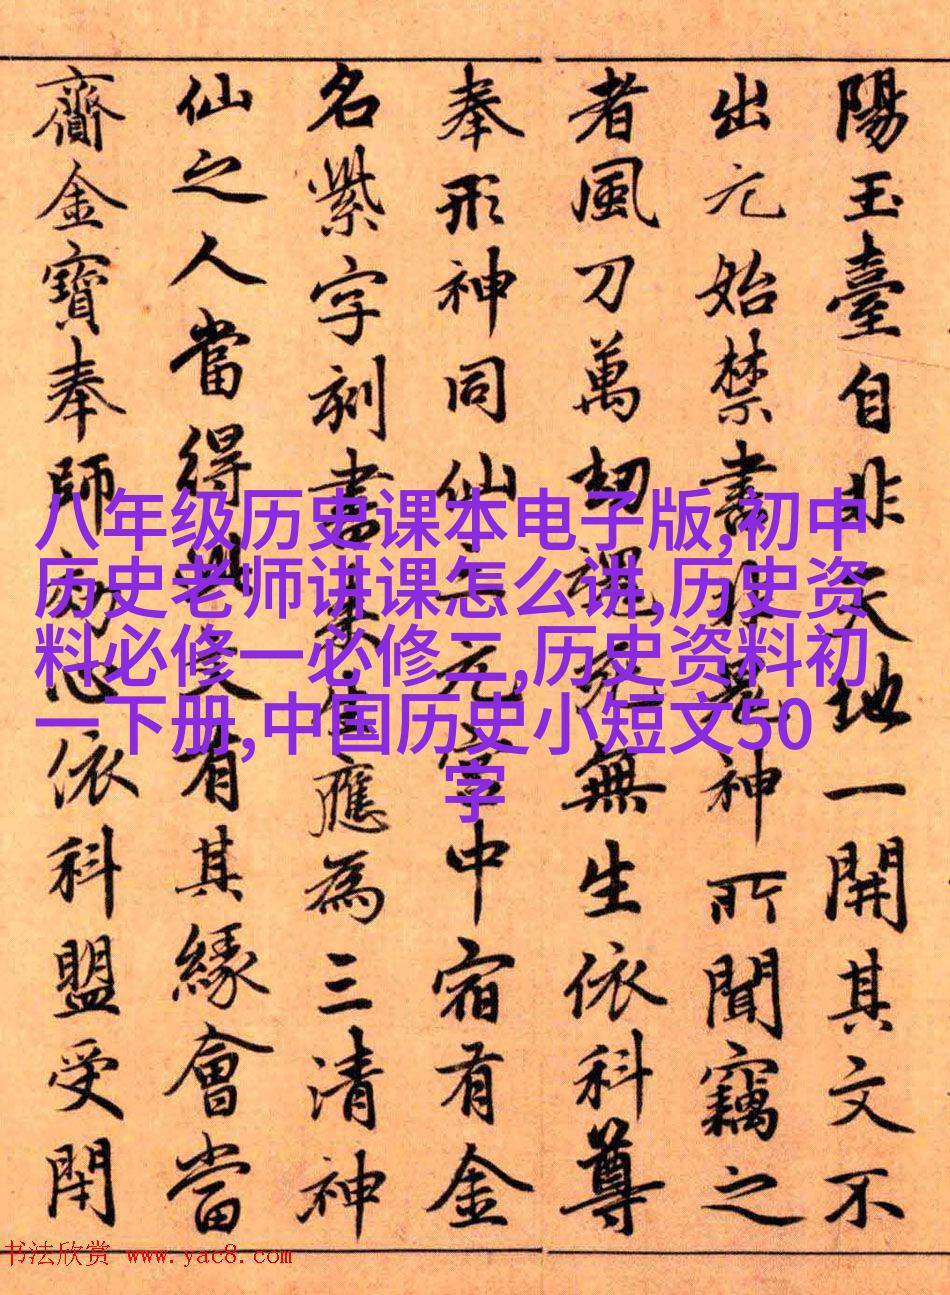 陽玉臺自非天地一開其文不
出元始禁書非鬼神所聞竊之
者風刀萬劫無生依科尊
奉形神同仙上元宮中宿有金
名紫字刻書來生應為三清神
仙之人當得此文有其緣會當
齎金寶奉師効心依科盟受開
八年级历史课本电子版,初中
历史老师讲课怎么讲,历史资
料必修一必修二,历史资料初
一下册,中国历史小短文50
字
书法欣赏 www.yac8.com